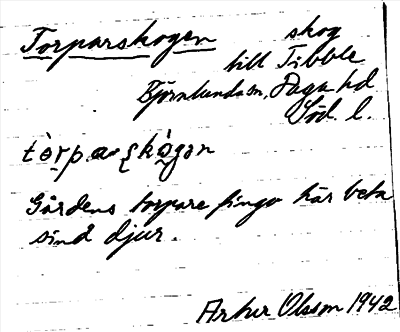 Torparskogen skog
till Tibble
Björnlunda sn, Daga hd
Söd. l.
tòrpa skògən
Gårdens torpare fingo här beta
sina djur.
Arthur Olsson 1942